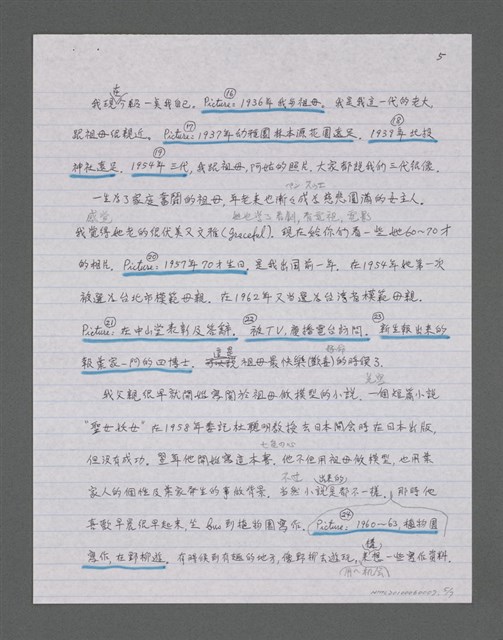 5
在
我現介紹一美我自己. Picture: ⑯ 1936年我与祖母. 我是我這一代的老大,
跟祖母很親近. Picture: ⑰ 1937年幼稚園林本源花園遠足. ⑱ 1939年北投
神社遠足. ⑲ 1954年三代, 我跟祖母,阿姑的照片. 大家都說我們三代很像.
一生為了家庭奮鬪的祖母, 年老來也漸々成為慈悲圓滿的女主人.
感覚
我覺得她老的很优美又文雅 (Graceful). 現在給你們看一些她60~70才
的相片. Picture: ⑳ 1957年70才生日, 是我出國前一年. 在1954年她第一次
被選為台北市模範母親. 在1962年又当選為台湾省模範母親.
Picture: ㉑ 在中山堂表彰及答辭. ㉒ 被TV.廣播電台訪問. ㉓ 新生報出來的
報葉家一門的四博士. 這是祖母最快樂(歡喜)的時候了.
我父親很早就開始寫関於祖母做模型的小說. 一個短篇小說
"聖女妖女" 在1958年委託杜聰明教授去日本開会時在日本出版.
但没有成功. 翌年他開始寫這本書. 他不但用祖母做模型, 也用葉
出來的
家人的個性及葉家發生的事做背景. 当然小說是都不一樣. 那時他
喜歡早晨很早起來, 坐 bus 到植物園寫作. Picture: ㉔ 1960~63, 植物園
寫作, 在野柳遊. 有時候到有趣的地方, 像野柳去遊玩, 想一些寫作資料.